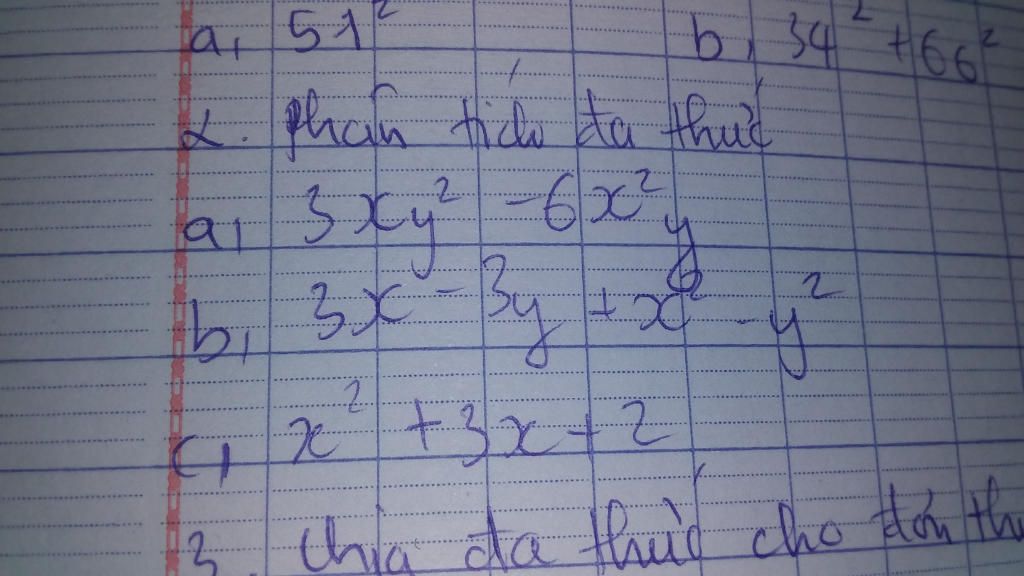 a, 51² b, 34² + 66²
2. phân tích đa thức
a, 3xy² - 6x²y
b, 3x - 3y + x² - y²
c, x² + 3x + 2
3. Chia đa thức cho đơn